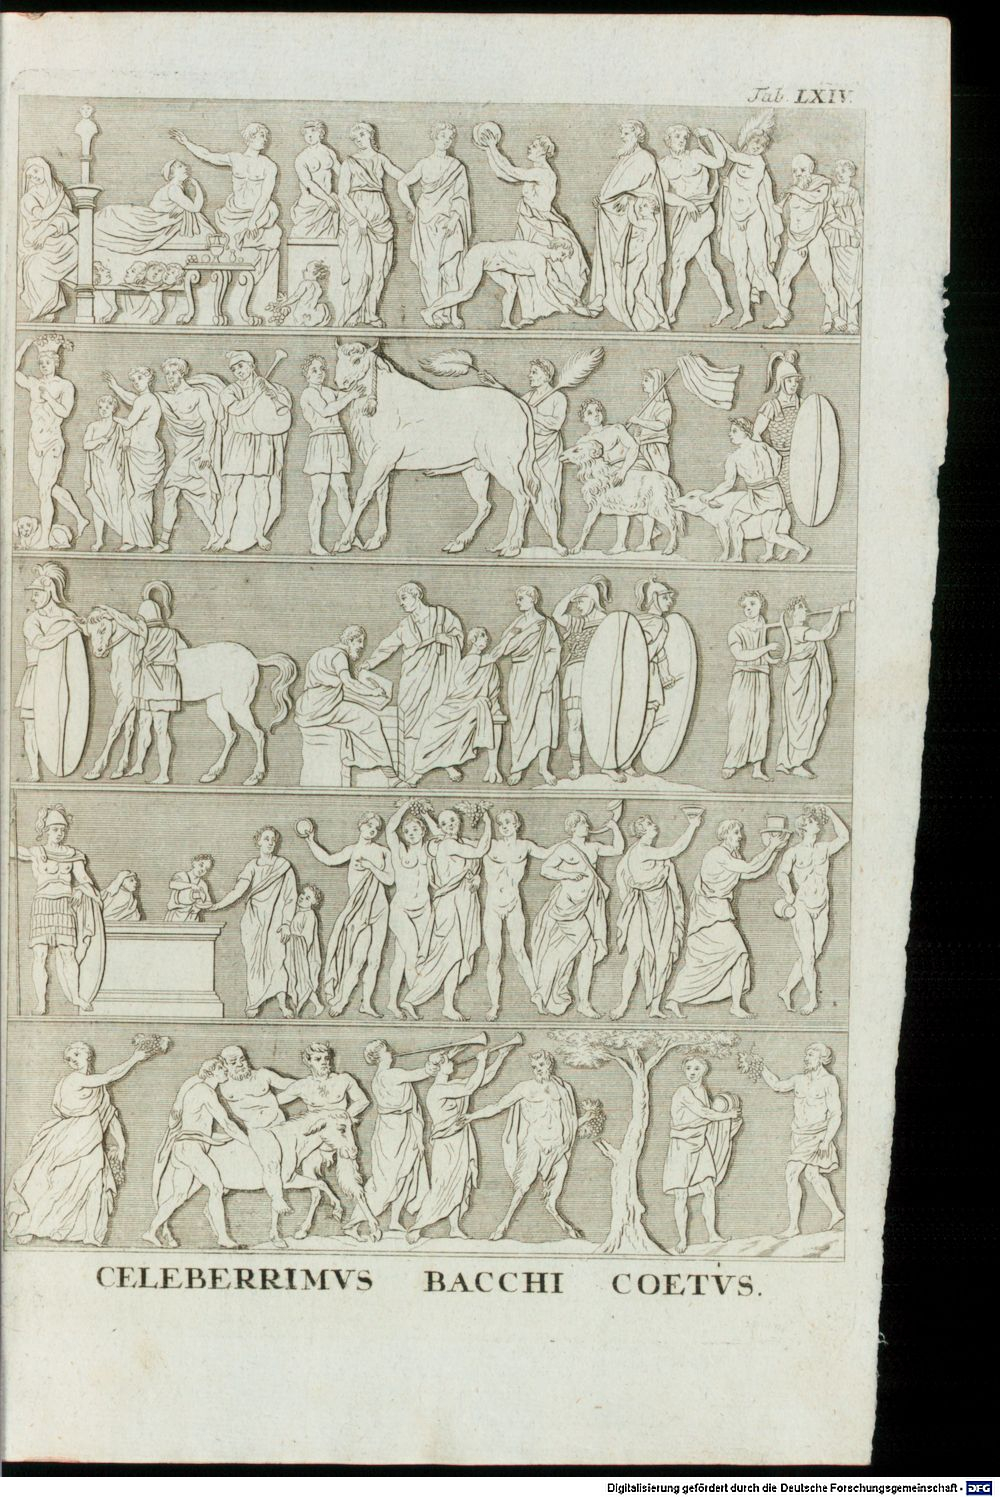 Tab. LXIV.
CELEBERRIMVS BACCHI COETVS.
Digitalisierung gefördert durch die Deutsche Forschungsgemeinschaft - DFG